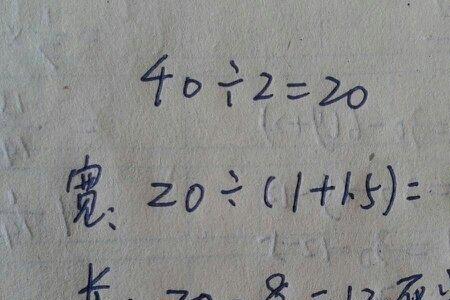 40÷2=20
寬: 20÷(1+1.5)=
长